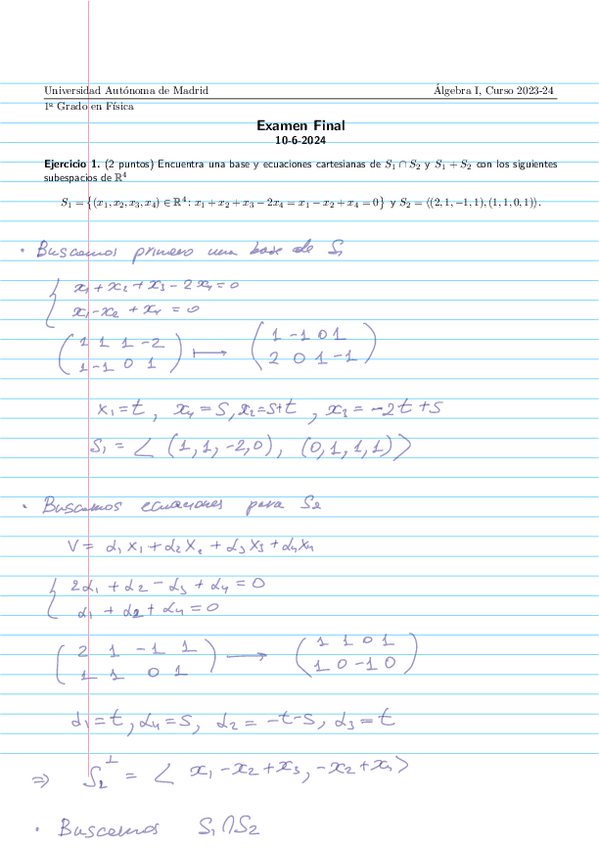 Universidad Autónoma de Madrid Álgebra I, Curso 2023-24
1º Grado en Física
Examen Final
10-6-2024
Ejercicio 1. (2 puntos) Encuentra una base y ecuaciones cartesianas de S₁ ∩ S₂ y S₁ + S₂ con los siguientes
subespacios de ℝ⁴
S₁ = {(x₁, x₂, x₃, x₄) ∈ ℝ⁴: x₁ + x₂ + x₃ − 2x₄ = x₁ − x₂ + x₄ = 0} y S₂ = ⟨(2, 1, −1, 1), (1, 1, 0, 1)⟩.
· Buscamos primero una base de S₁
{ x₁ + x₂ + x₃ − 2x₄ = 0
x₁ − x₂ + x₄ = 0
( 1 1 1 −2 ) ⟼ ( 1 −1 0 1 )
( 1 −1 0 1 ) ( 2 0 1 −1 )
x₁ = t, x₄ = s, x₂ = s+t, x₃ = −2t + s
S₁ = < (1, 1, −2, 0), (0, 1, 1, 1) >
· Buscamos ecuaciones para S₂
V = α₁x₁ + α₂x₂ + α₃x₃ + α₄x₄
{ 2α₁ + α₂ − α₃ + α₄ = 0
α₁ + α₂ + α₄ = 0
( 2 1 −1 1 ) ⟶ ( 1 1 0 1 )
( 1 1 0 1 ) ( 1 0 −1 0 )
α₁ = t, α₄ = s, α₂ = −t−s, α₃ = t
⇒ S₂^⊥ = < x₁ − x₂ + x₃, −x₂ + x₄ >
· Buscamos S₁ ∩ S₂